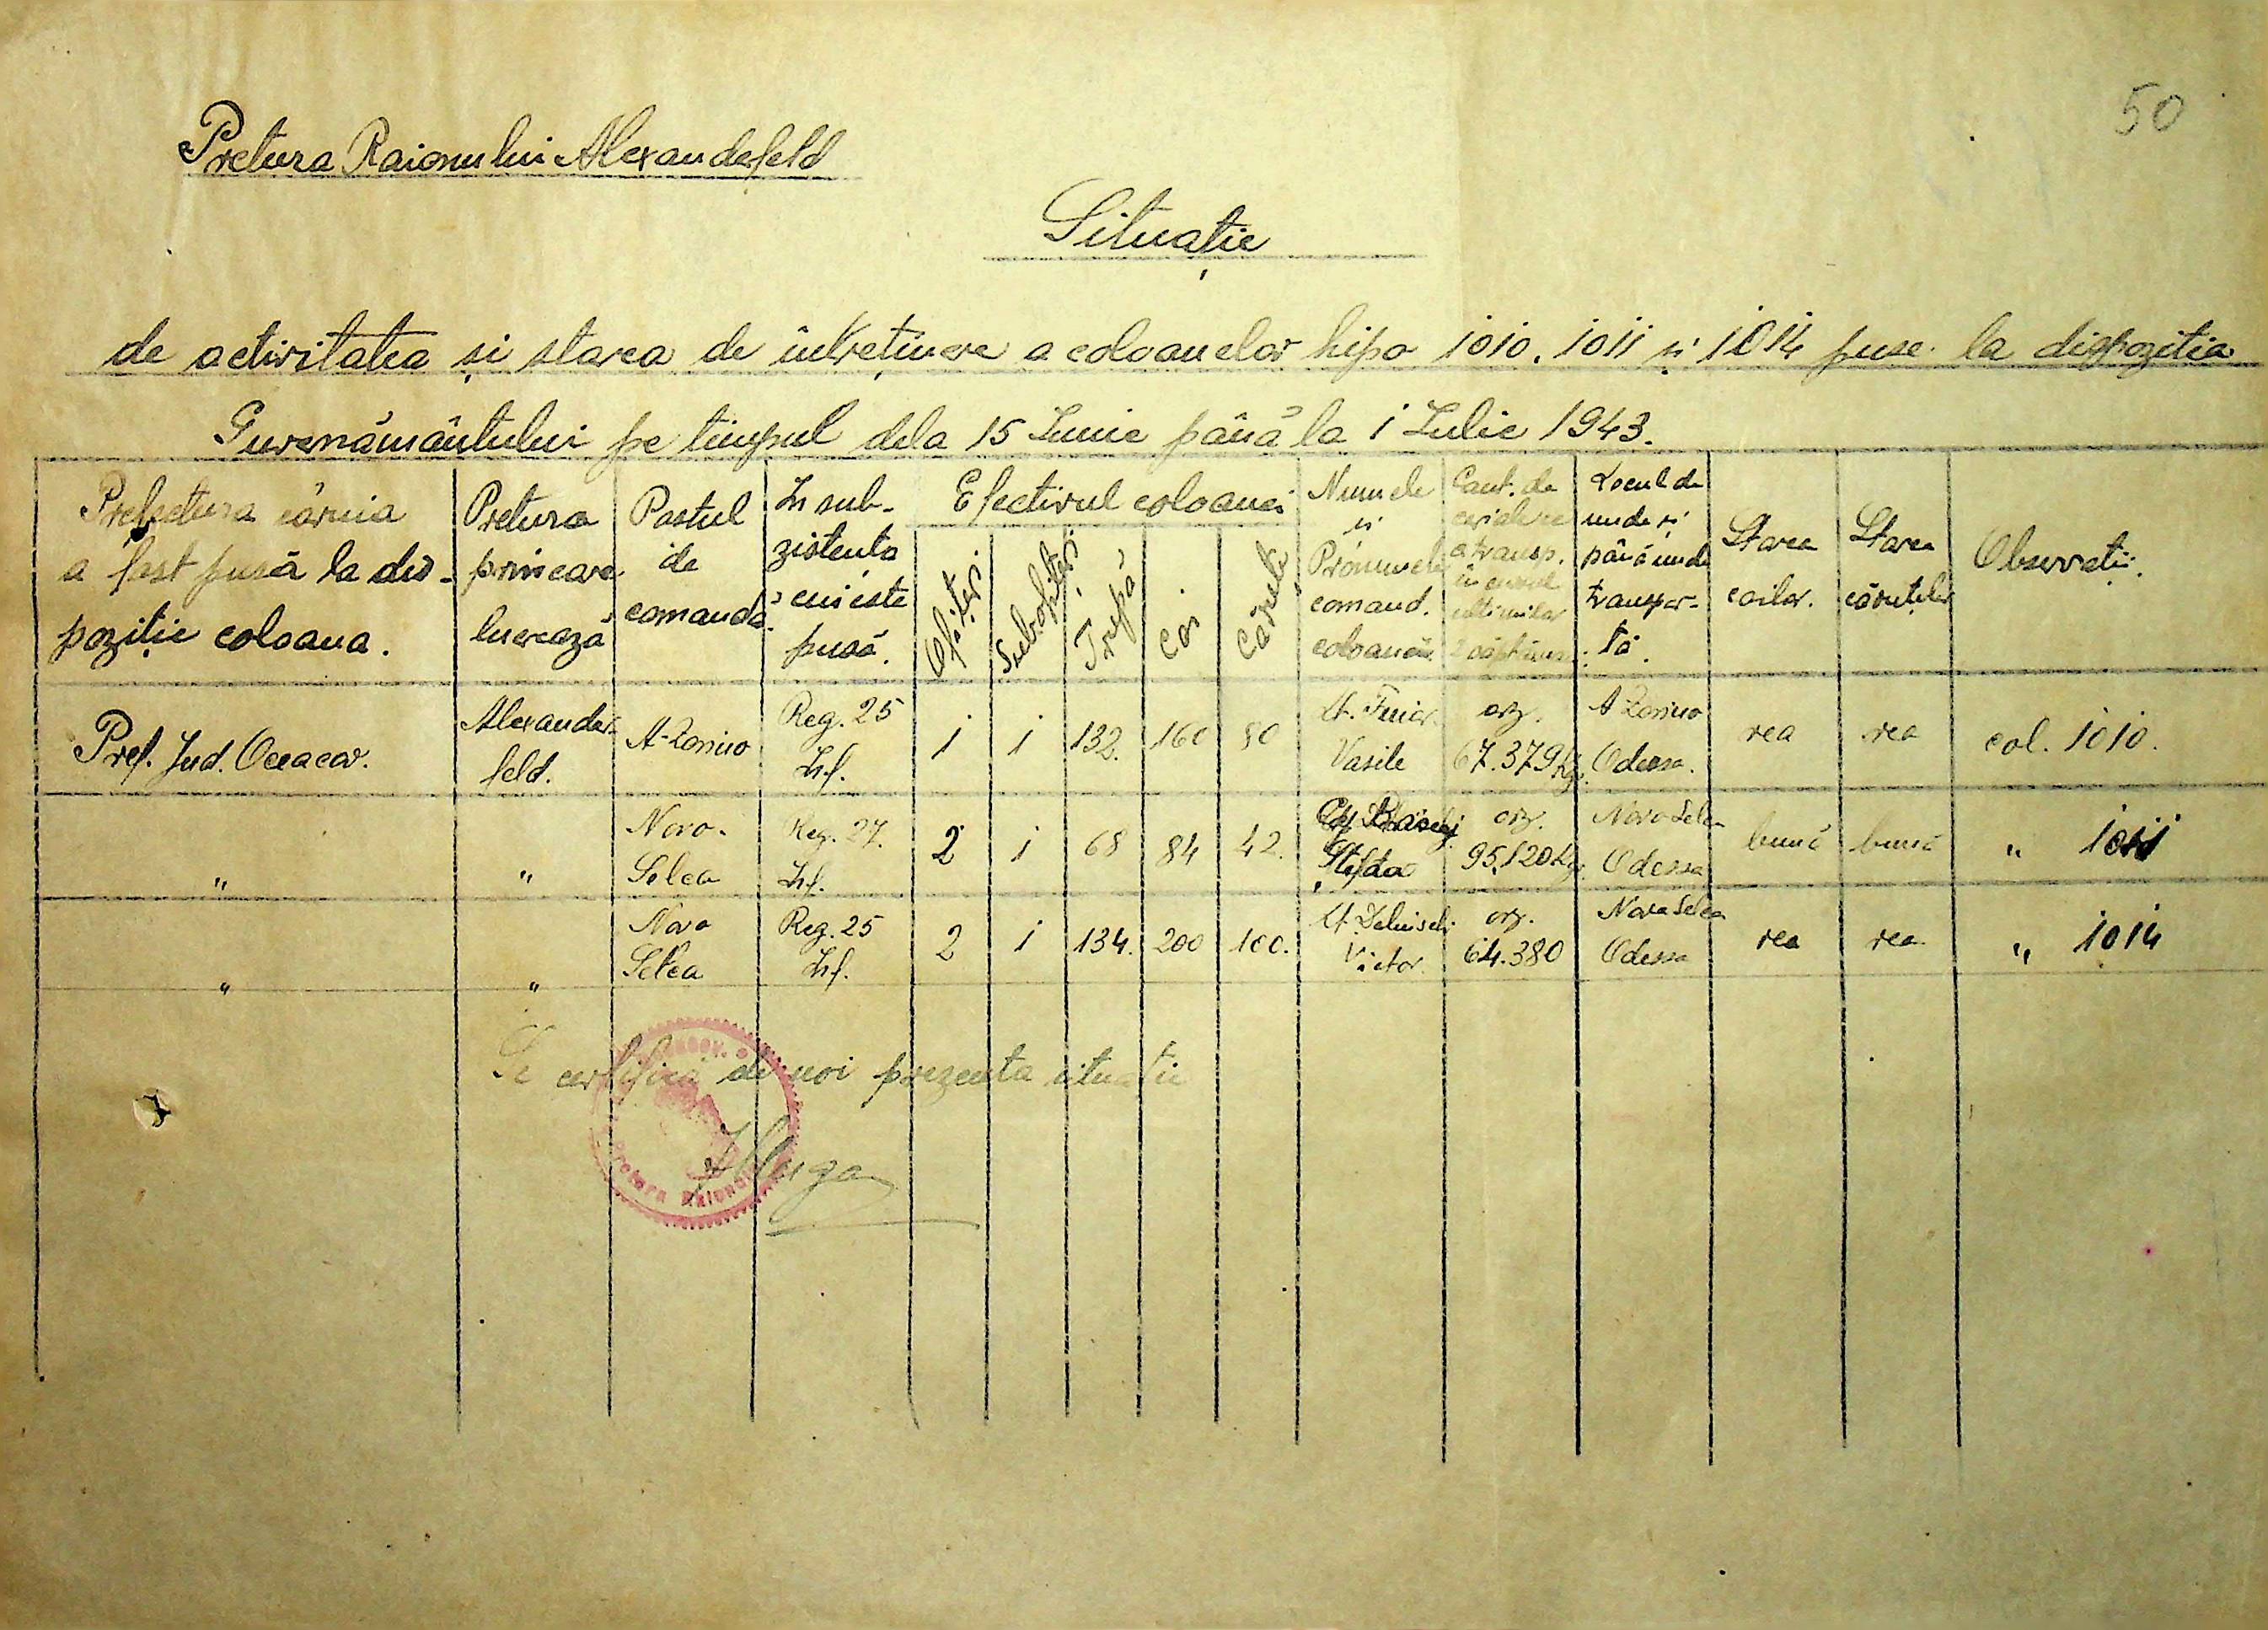 50
Pretura Raionului Alexandefeld
Situaţie
de activitatea şi starea de întreţinere a coloanelor hipo 1010, 1011 şi 1014 puse la dispozitia
Guvernământului pe timpul dela 15 Iunie până la 1 Iulie 1943.
Prefectura căruia
a fost pusă la dis-
poziţie coloana.
Pretura
prin care
lucrează
Postul
de
comandă
In sub-
zistenta
cui este
pusă.
Efectivul coloanei
Ofiţeri
Subofiţeri
Trupă
Cai
Căruţe
Numele
şi
Pronumele
comand.
coloanei
Cant. de
cereale
a transp.
în cursul
ultimilor
2 săptămâni
Locul de
unde şi
până unde
transpor-
tă.
Starea
cailor.
Starea
căruţelor
Observatii.
Pref. Jud. Oceacov.
Alexander-
feld.
Reg. 25
Inf.
1
1
132.
160
80
Vasile
orz.
67.379 kgr.
Odessa.
rea
rea
col. 1010.
"
"
Novo-
Selca
Reg. 27.
Inf.
2
1
68
84
42.
orz.
95.120 kgr.
Novo Selca
Odessa
bună
bună
" 1011
"
"
Novo
Selca
Reg. 25
Inf.
2
1
134.
200
100.
Victor.
orz.
64.380
Nova Selca
Odessa
rea
rea
" 1014
Se certifică de noi prezenta situatie
Pretura Raionului